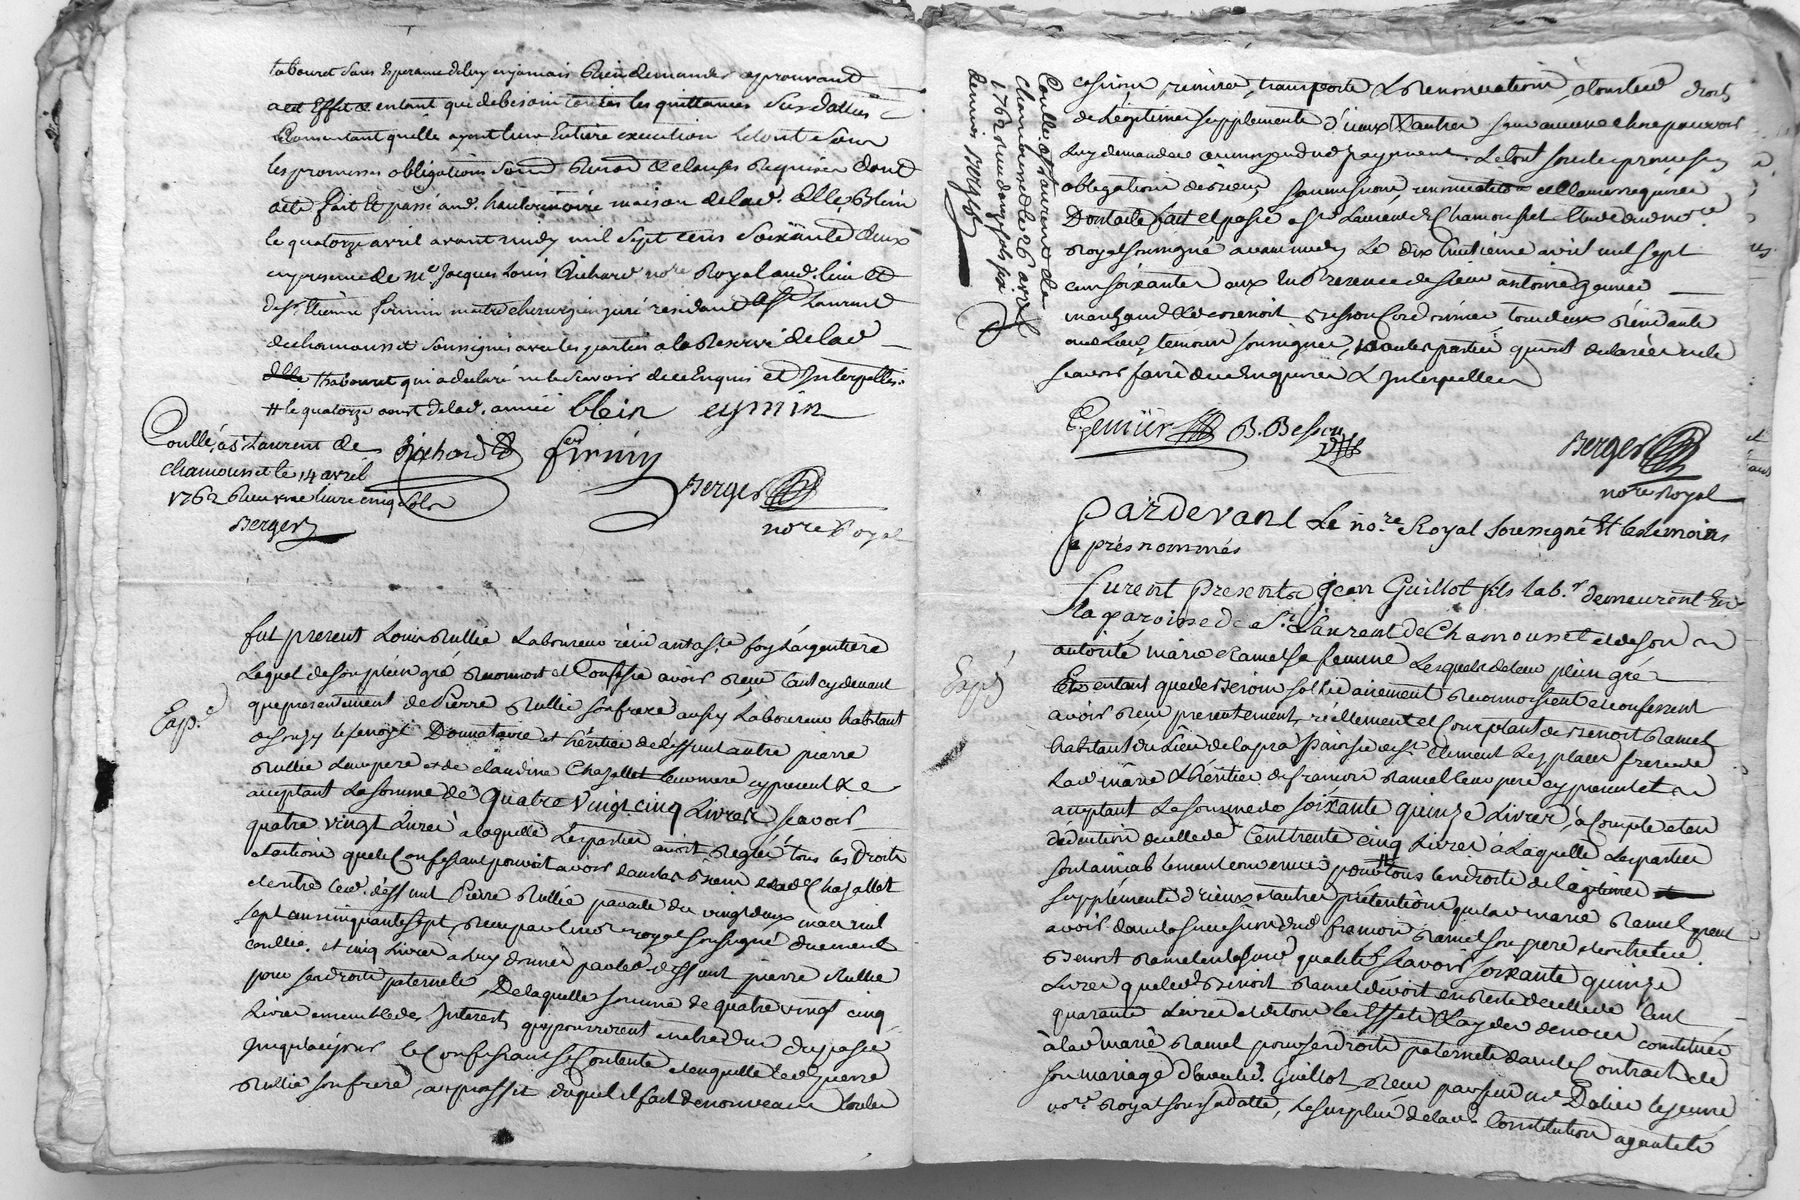 tabouret sans Esperance de luy en jamais Rien demander aprouvant
a cet Effet entant que de besoin toutes les quittances Sus dattées
Consentant quelle ayent leur Entiere execution Le tout sous
les promesses obligations Soum. Renon. & clauses Requises dont
acte fait Et passé aud. hautvinoire maison de lad. Elle Blein
le quatorze avril avant midy mil Sept cens Soixante deux
en presence de Me. Jacques Louis Richard nore Royal aud. lieu et
de sr. Etienne firmin maitre chirurgien juré residant a St Laurent
de chamousset Soussignés avec les parties a la Reserve de lad
tabouret qui a declaré ne le Scavoir de ce Enquis et Interpellée
# le quatorze aoust de lad. année blein eymin
Conllé, à St Laurent de
chamousset le 14 avril
1762 Reçu une livre cinq sols
Berger
Richard
firmin
Berger
nore Royal
fut present Louis Rullie Laboureur residant a Ste foy Largentiere
Lequel de son plein gré Reconnoit et Confesse avoir Reçu tant cy devant
que presentement de Pierre Rullie son frere aussy Laboureur habitant
a Souzy Donnataire et héritier de deffunt autre pierre
Rullie Leur pere et de claudine Chazallet leur mere cy present & e
acceptant La somme de quatre vingt cinq Livres Scavoir
quatre vingt Livres a laquelle Les parties avoit Reglés tous les Droits
et actions que le Confessant pouvoit avoir dans les Biens de lad. Chazallet
et contre led. deffunt Pierre Rullie par acte du vingt deux mil
sept cens cinquante sept, Reçu par le nore royal soussigné duement
conllé. et cinq Livres a luy donnés par led. deffunt pierre Rullie
pour ses droits paternels, De laquelle somme de quatre vingt cinq
Livres ensemble des Interests qui pourroient du passé
jusqu'à ce jour le Confessant se Contente et en quitte led pierre
Rullie son frere au proffit duquel il fait de nouveau toutes
Exp.é
Conllé. a St Laurent de
chamousset le 26 avril
1762 Reçu
Berger
cession, remise, transporte & Renonciation, a tous led droits
de Légitime supplement d'iceux & autres sans aucune chose pouvoir
Luy demander au moyen dud payement. Le tout sous les promesses
obligations des biens, soumissions renonciations et Clauses requises
Dont acte fait et passé a St. Laurent de Chamousset Etude dud nore
Royal soussigné avant midy Le dix huitième avril mil sept
cens soixante deux En Presence de sieur antoine gemier
marchand & de benoit Besson Cordonnier, tous deux Résidants
aud. Lieu, temoins soussignés, non les parties qui ont declarées ne le
scavoir faire de ce Enquises & Interpellées
gemier B. Besson
Berger
nore Royal
Pardevant Le nore Royal Soussigné Et les temoins
apres nommés
Furent Presents Jean Guillot fils lab.r demeurent En
la paroisse de St. Laurent de Chamousset et de son
autorité marie Ramel Sa femme Lesquels de leur plein gré
entant que de Besoin sollidairement Reconnoissent et confessent
avoir Reçu presentement, réellement et Comptant de Benoit Ramel
habitant du Lieu de Paroisse de St. Clement Les places frere de
Lad marie & héritier de françois Ramel leur pere cy present et
acceptant La somme de soixante quinze Livres, à Compte et en
déduction de celle de Cent trente cinq Livres à Laquelle Les parties
sont amiablement convenues pour tous les droits de légitime
supplements d'iceux & autres prétentions que lad marie Ramel peut
avoir dans la succession dud. françois Ramel son pere et contre led.
Benoit Ramel en lad qualité, Scavoir soixante quinze
Livres que led. Benoit Ramel devoit en Reste de celle de Cent
quarante Livres et de tous les Effets & Layde de noces constitués
à lad marie Ramel pour ses droits paternels dans le Contract de
son mariage d'avec led. Guillot, Reçu par feu me. Dolier le jeune
nore. Royal sous sa datte, Le surplus de lad. Constitution ayant eté
Expé